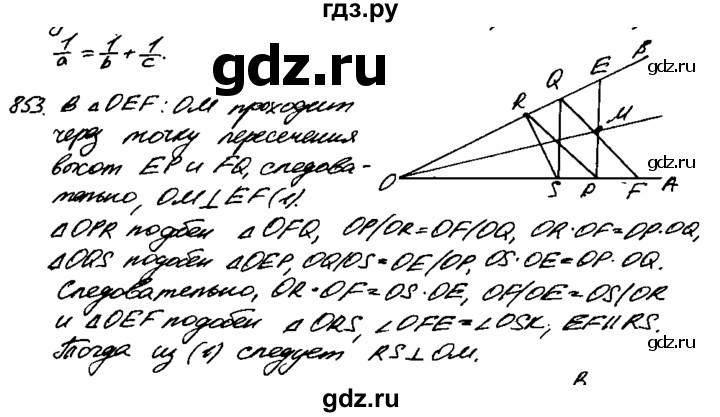 гдз.ру
1/a = 1/b + 1/c.
gdz.ru
gdz.ru
gdz.ru
853. В △OEF: OM проходит
через точку пересечения
высот EP и FQ, следова-
тельно, OM⊥EF (1).
B
E
Q
R
M
O
S
P
F
A
gdz.ru
△OPR подобен △OFQ, OP/OR=OF/OQ, OR·OF=OP·OQ,
△OQS подобен △OEP, OQ/OS=OE/OP, OS·OE=OP·OQ.
Следовательно, OR·OF=OS·OE, OF/OE=OS/OR
и △OEF подобен △ORS, ∠OFE=∠OSR, EF∥RS.
Тогда из (1) следует RS⊥OM.
gdz.ru
gdz.ru
gdz.ru
gdz.ru